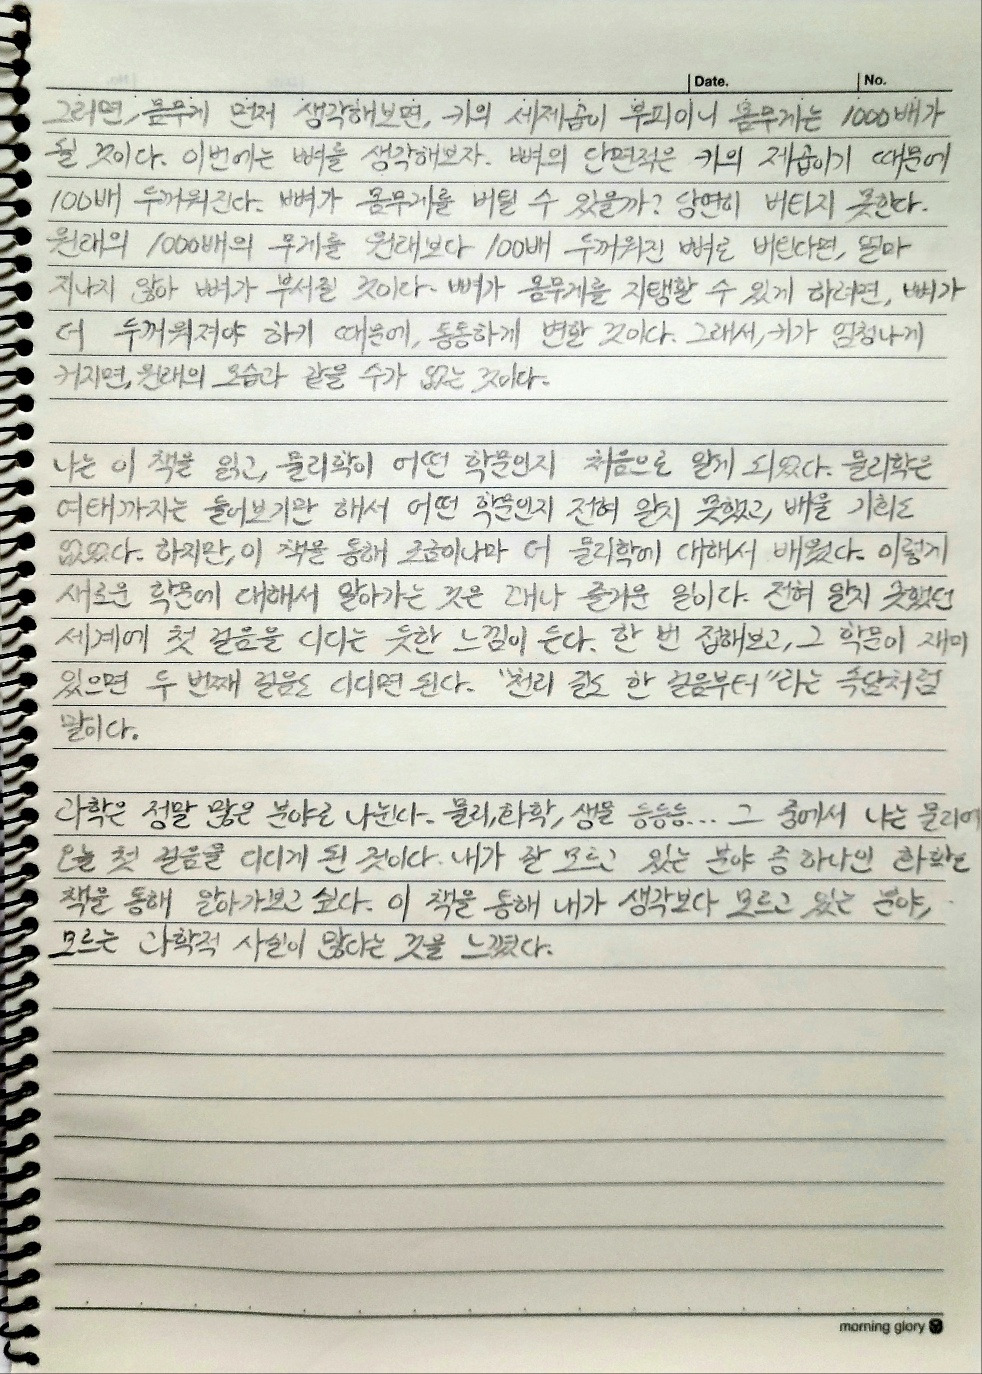 Date. No.
그러면, 몸무게 먼저 생각해보면, 키의 세제곱이 부피이니 몸무게는 1000배가
될 것이다. 이번에는 뼈를 생각해보자. 뼈의 단면적은 키의 제곱이기 때문에
100배 두꺼워진다. 뼈가 몸무게를 버틸 수 있을까? 당연히 버티지 못한다.
원래의 1000배의 무게를 원래보다 100배 두꺼워진 뼈로 버틴다면, 얼마
지나지 않아 뼈가 부서질 것이다. 뼈가 몸무게를 지탱할 수 있게 하려면, 뼈가
더 두꺼워져야 하기 때문에, 통통하게 변할 것이다. 그래서, 키가 엄청나게
커지면, 원래의 모습과 같을 수가 없는 것이다.
나는 이 책을 읽고, 물리학이 어떤 학문인지 처음으로 알게 되었다. 물리학은
여태까지는 들어보기만 해서 어떤 학문인지 전혀 알지 못했고, 배울 기회도
없었다. 하지만, 이 책을 통해 조금이나마 더 물리학에 대해서 배웠다. 이렇게
새로운 학문에 대해서 알아가는 것은 꽤나 즐거운 일이다. 전혀 알지 못했던
세계에 첫 걸음을 디디는 듯한 느낌이 든다. 한 번 접해보고, 그 학문이 재미
있으면 두 번째 걸음도 디디면 된다. "천리 길도 한 걸음부터"라는 속담처럼
말이다.
과학은 정말 많은 분야로 나뉜다. 물리, 화학, 생물 등등등... 그 중에서 나는 물리에
오늘 첫 걸음을 디디게 된 것이다. 내가 잘 모르고 있는 분야 중 하나인 화학도
책을 통해 알아가보고 싶다. 이 책을 통해 내가 생각보다 모르고 있는 분야,
모르는 과학적 사실이 많다는 것을 느꼈다.
morning glory